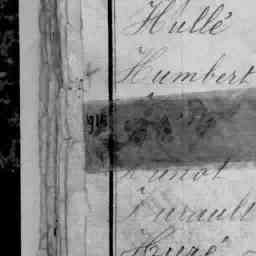 Hullé
Humbert
Hunot
Hurault
Huré